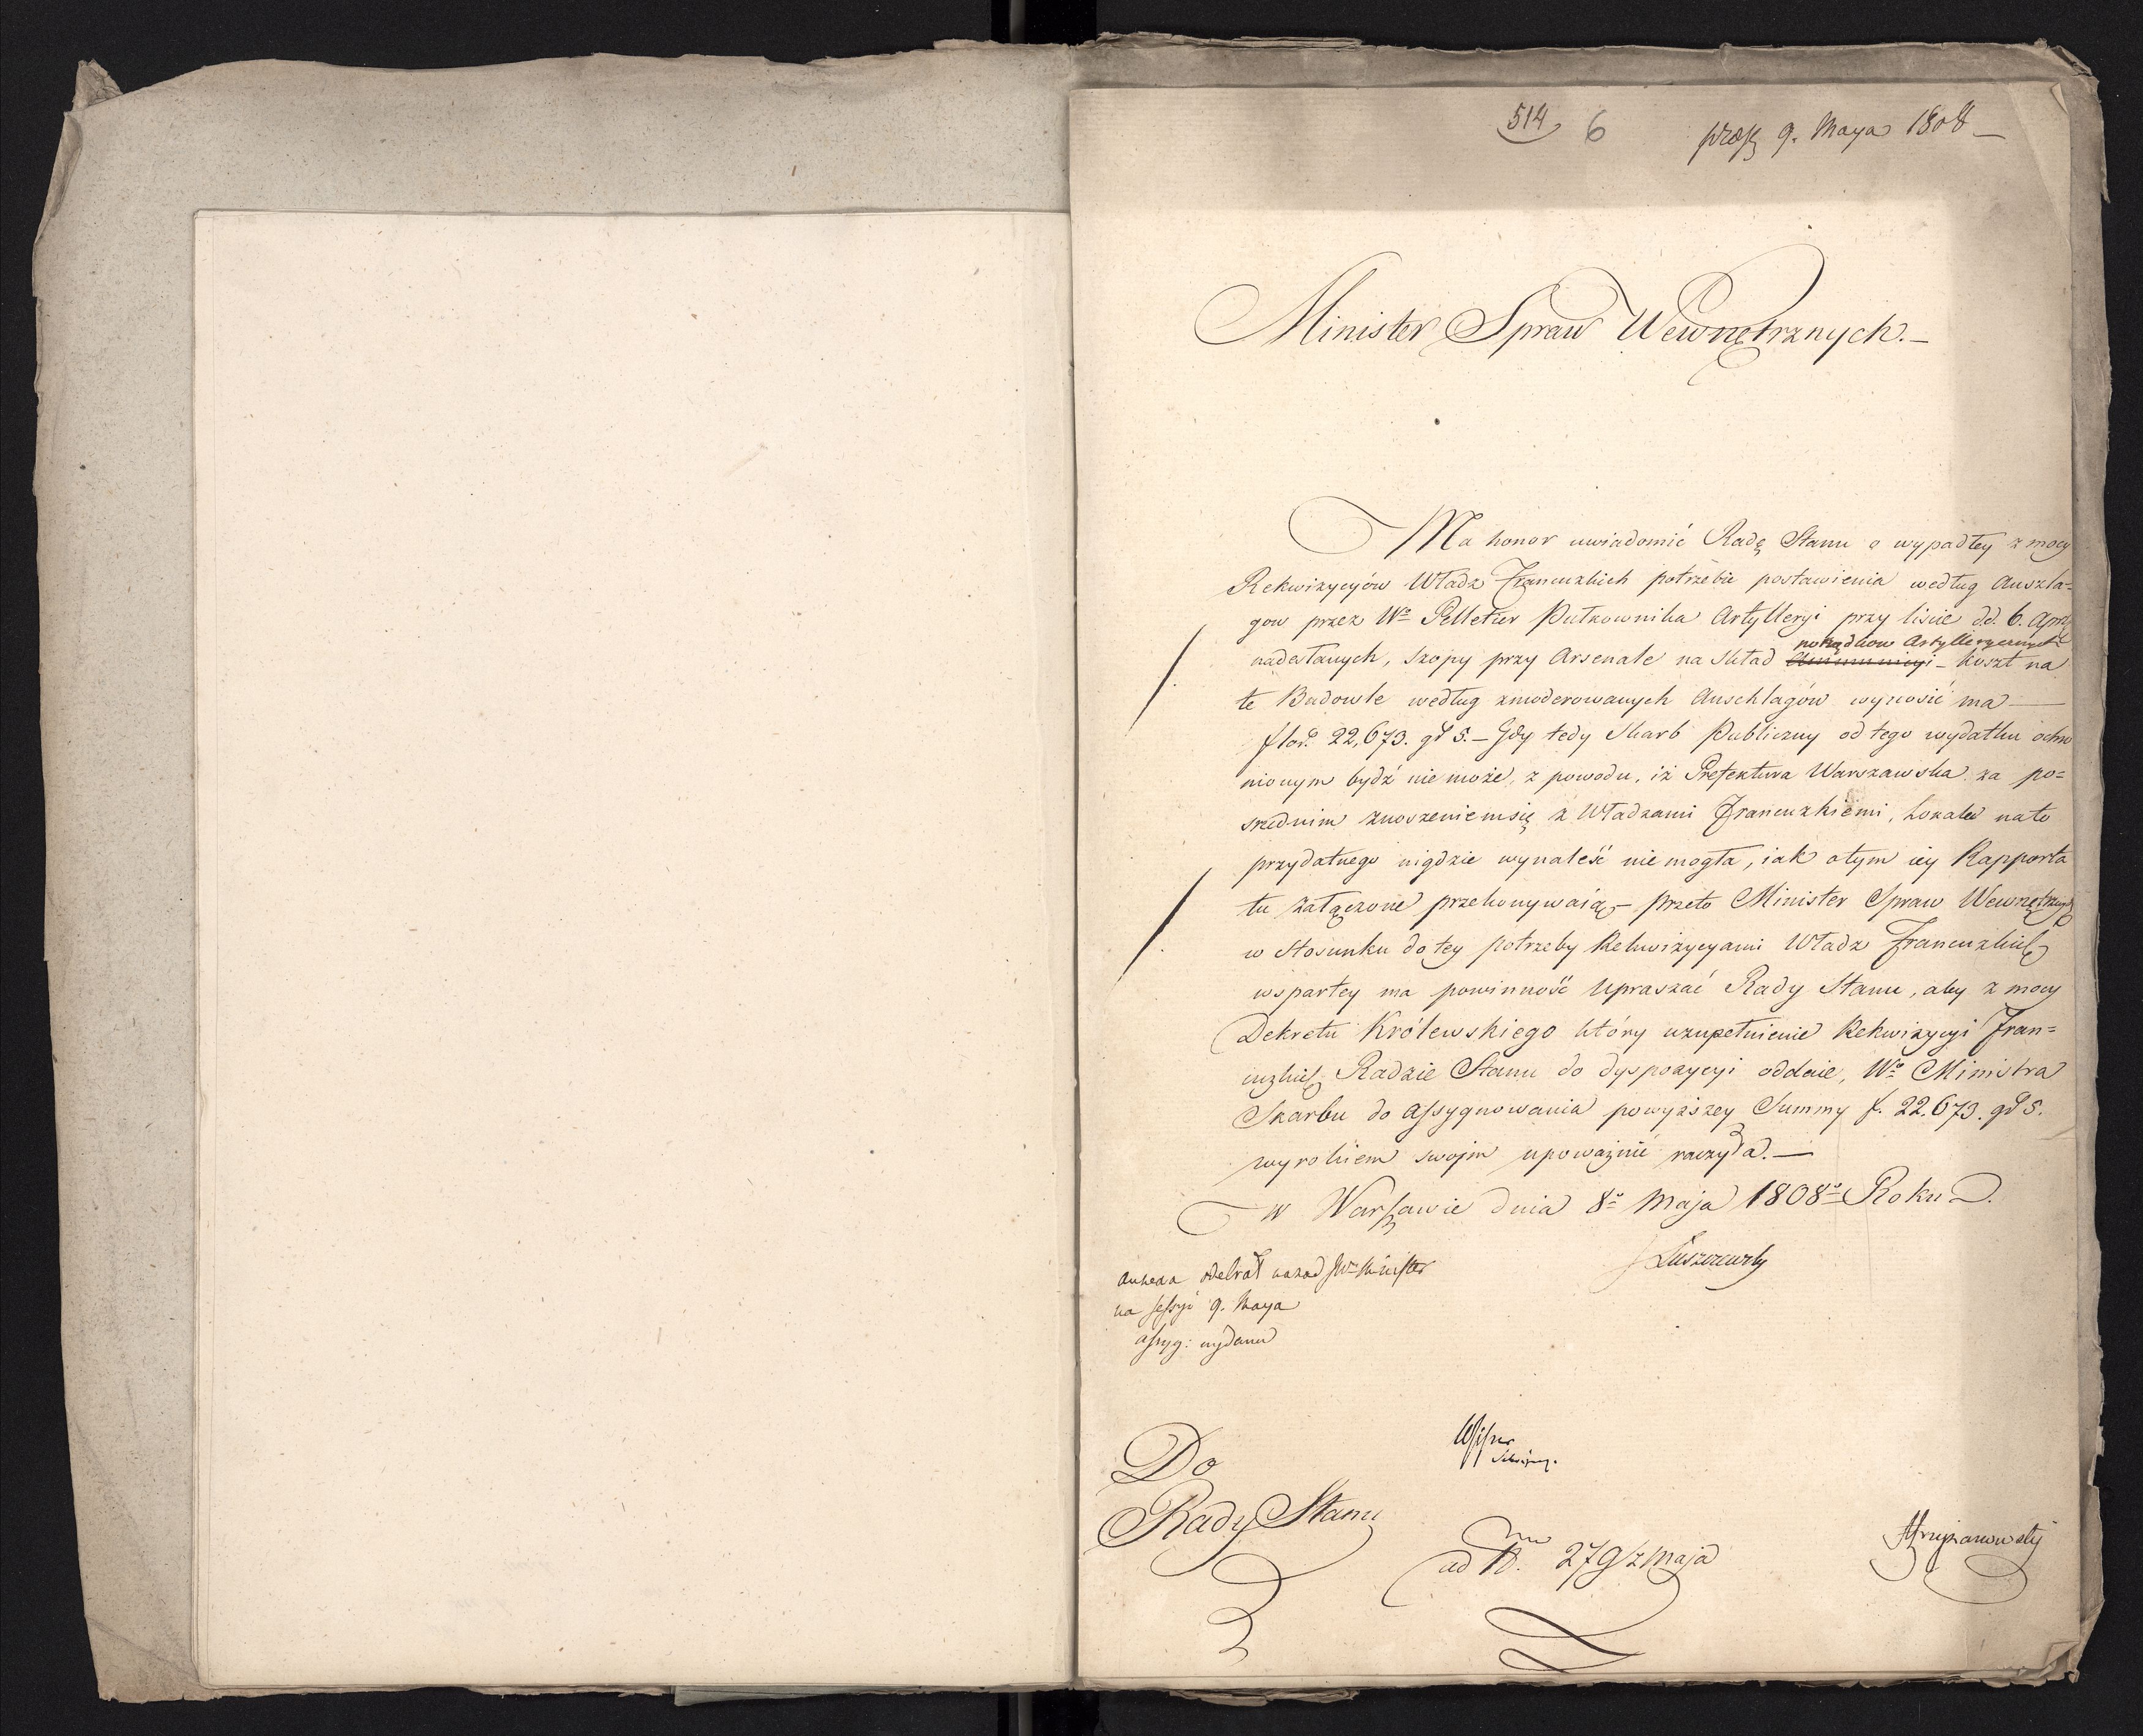 514 6 præs 9. Maya 1808 —
Minister Spraw Wewnętrznych. —
Ma honor uwiadomić Radę Stanu o wypadłey z mocy
Rekwizycyów Władz Francuzkich potrzebie postawienia według Auszla=
gow przez Wº Pelletier Pułkownika Artylleryi przy liście d.d. 6. Apr.
porządkow Artylleryczych
nadesłanych, szopy przy Arsenale na skład Ammunicyi – koszt na
te Budowle według zmoderowanych Anschlagów wynosić ma —
flor. 22,673. gr 5. – Gdy tedy Skarb Publiczny od tego wydatku ochro
nionym bydź nie może, z powodu, iż Prefektura Warszawska za po=
srednim znoszeniem się z Władzami Francuzkiemi, Lokalu na to
przydatnego nigdzie wynaleść nie mogła, iak o tym iey Rapporta
tu załączone przekonywaią – przeto Minister Spraw Wewnętrznych
w Stosunku do tey potrzeby Rekwizycyami Władz Francuzkich
wspartey ma powinność upraszać Rady Stanu, aby z mocy
Dekretu Królewskiego który uzupełnienie Rekwizycyi Fran=
cuzkich Radzie Stanu do dyspozycyi oddaie, Wº Ministra
Skarbu do assygnowania powyższey Summy f. 22.673. gr 5.
wyrokiem swojm upoważnić raczyła. —
w Warszawie dnia 8º Maja 1808º Roku.
Łuszczewsky
Annexa odebrał nazad JWº Minister
na sessyi 9. Maya
assyg: wydana
Do
Rady Stanu
ad N. 279 z Maja